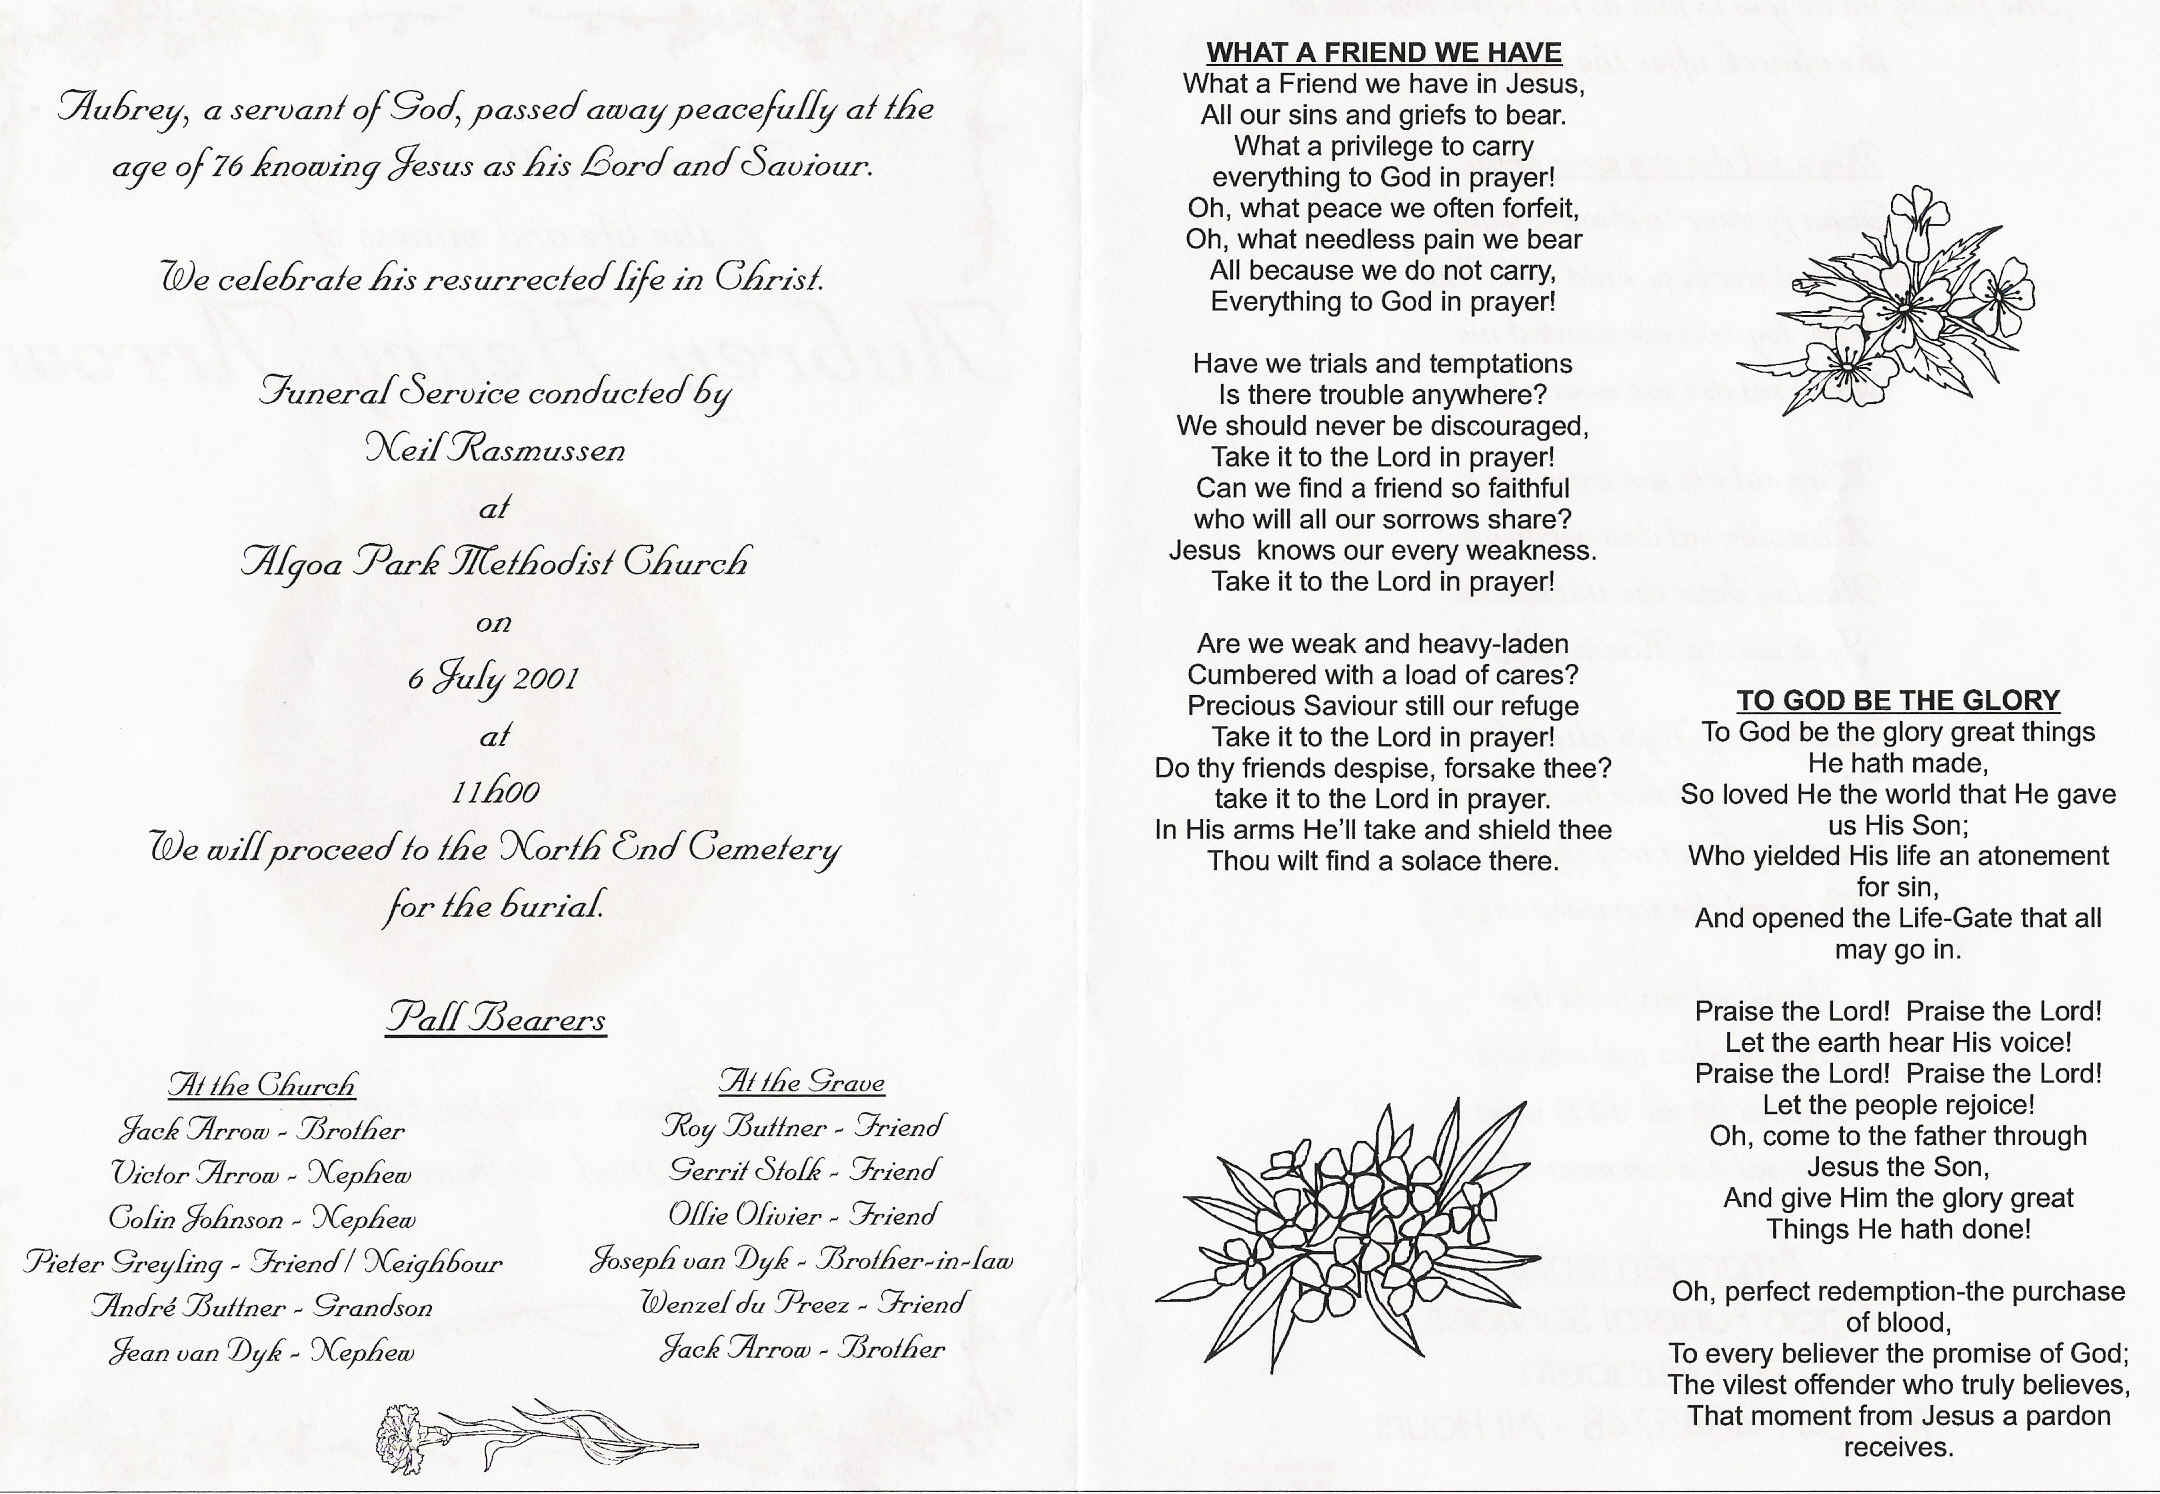 Aubrey, a servant of God, passed away peacefully at the
age of 76 knowing Jesus as his Lord and Saviour.
We celebrate his resurrected life in Christ.
Funeral Service conducted by
Neil Rasmussen
at
Algoa Park Methodist Church
on
6 July 2001
at
11h00
We will proceed to the North End Cemetery
for the burial.
Pall Bearers
At the Church
Jack Arrow - Brother
Victor Arrow - Nephew
Colin Johnson - Nephew
Pieter Greyling - Friend / Neighbour
André Buttner - Grandson
Jean van Dyk - Nephew
At the Grave
Roy Buttner - Friend
Gerrit Stolk - Friend
Ollie Olivier - Friend
Joseph van Dyk - Brother-in-law
Wenzel du Preez - Friend
Jack Arrow - Brother
WHAT A FRIEND WE HAVE
What a Friend we have in Jesus,
All our sins and griefs to bear.
What a privilege to carry
everything to God in prayer!
Oh, what peace we often forfeit,
Oh, what needless pain we bear
All because we do not carry,
Everything to God in prayer!
Have we trials and temptations
Is there trouble anywhere?
We should never be discouraged,
Take it to the Lord in prayer!
Can we find a friend so faithful
who will all our sorrows share?
Jesus  knows our every weakness.
Take it to the Lord in prayer!
Are we weak and heavy-laden
Cumbered with a load of cares?
Precious Saviour still our refuge
Take it to the Lord in prayer!
Do thy friends despise, forsake thee?
take it to the Lord in prayer.
In His arms He'll take and shield thee
Thou wilt find a solace there.
TO GOD BE THE GLORY
To God be the glory great things
He hath made,
So loved He the world that He gave
us His Son;
Who yielded His life an atonement
for sin,
And opened the Life-Gate that all
may go in.
Praise the Lord!  Praise the Lord!
Let the earth hear His voice!
Praise the Lord!  Praise the Lord!
Let the people rejoice!
Oh, come to the father through
Jesus the Son,
And give Him the glory great
Things He hath done!
Oh, perfect redemption-the purchase
of blood,
To every believer the promise of God;
The vilest offender who truly believes,
That moment from Jesus a pardon
receives.